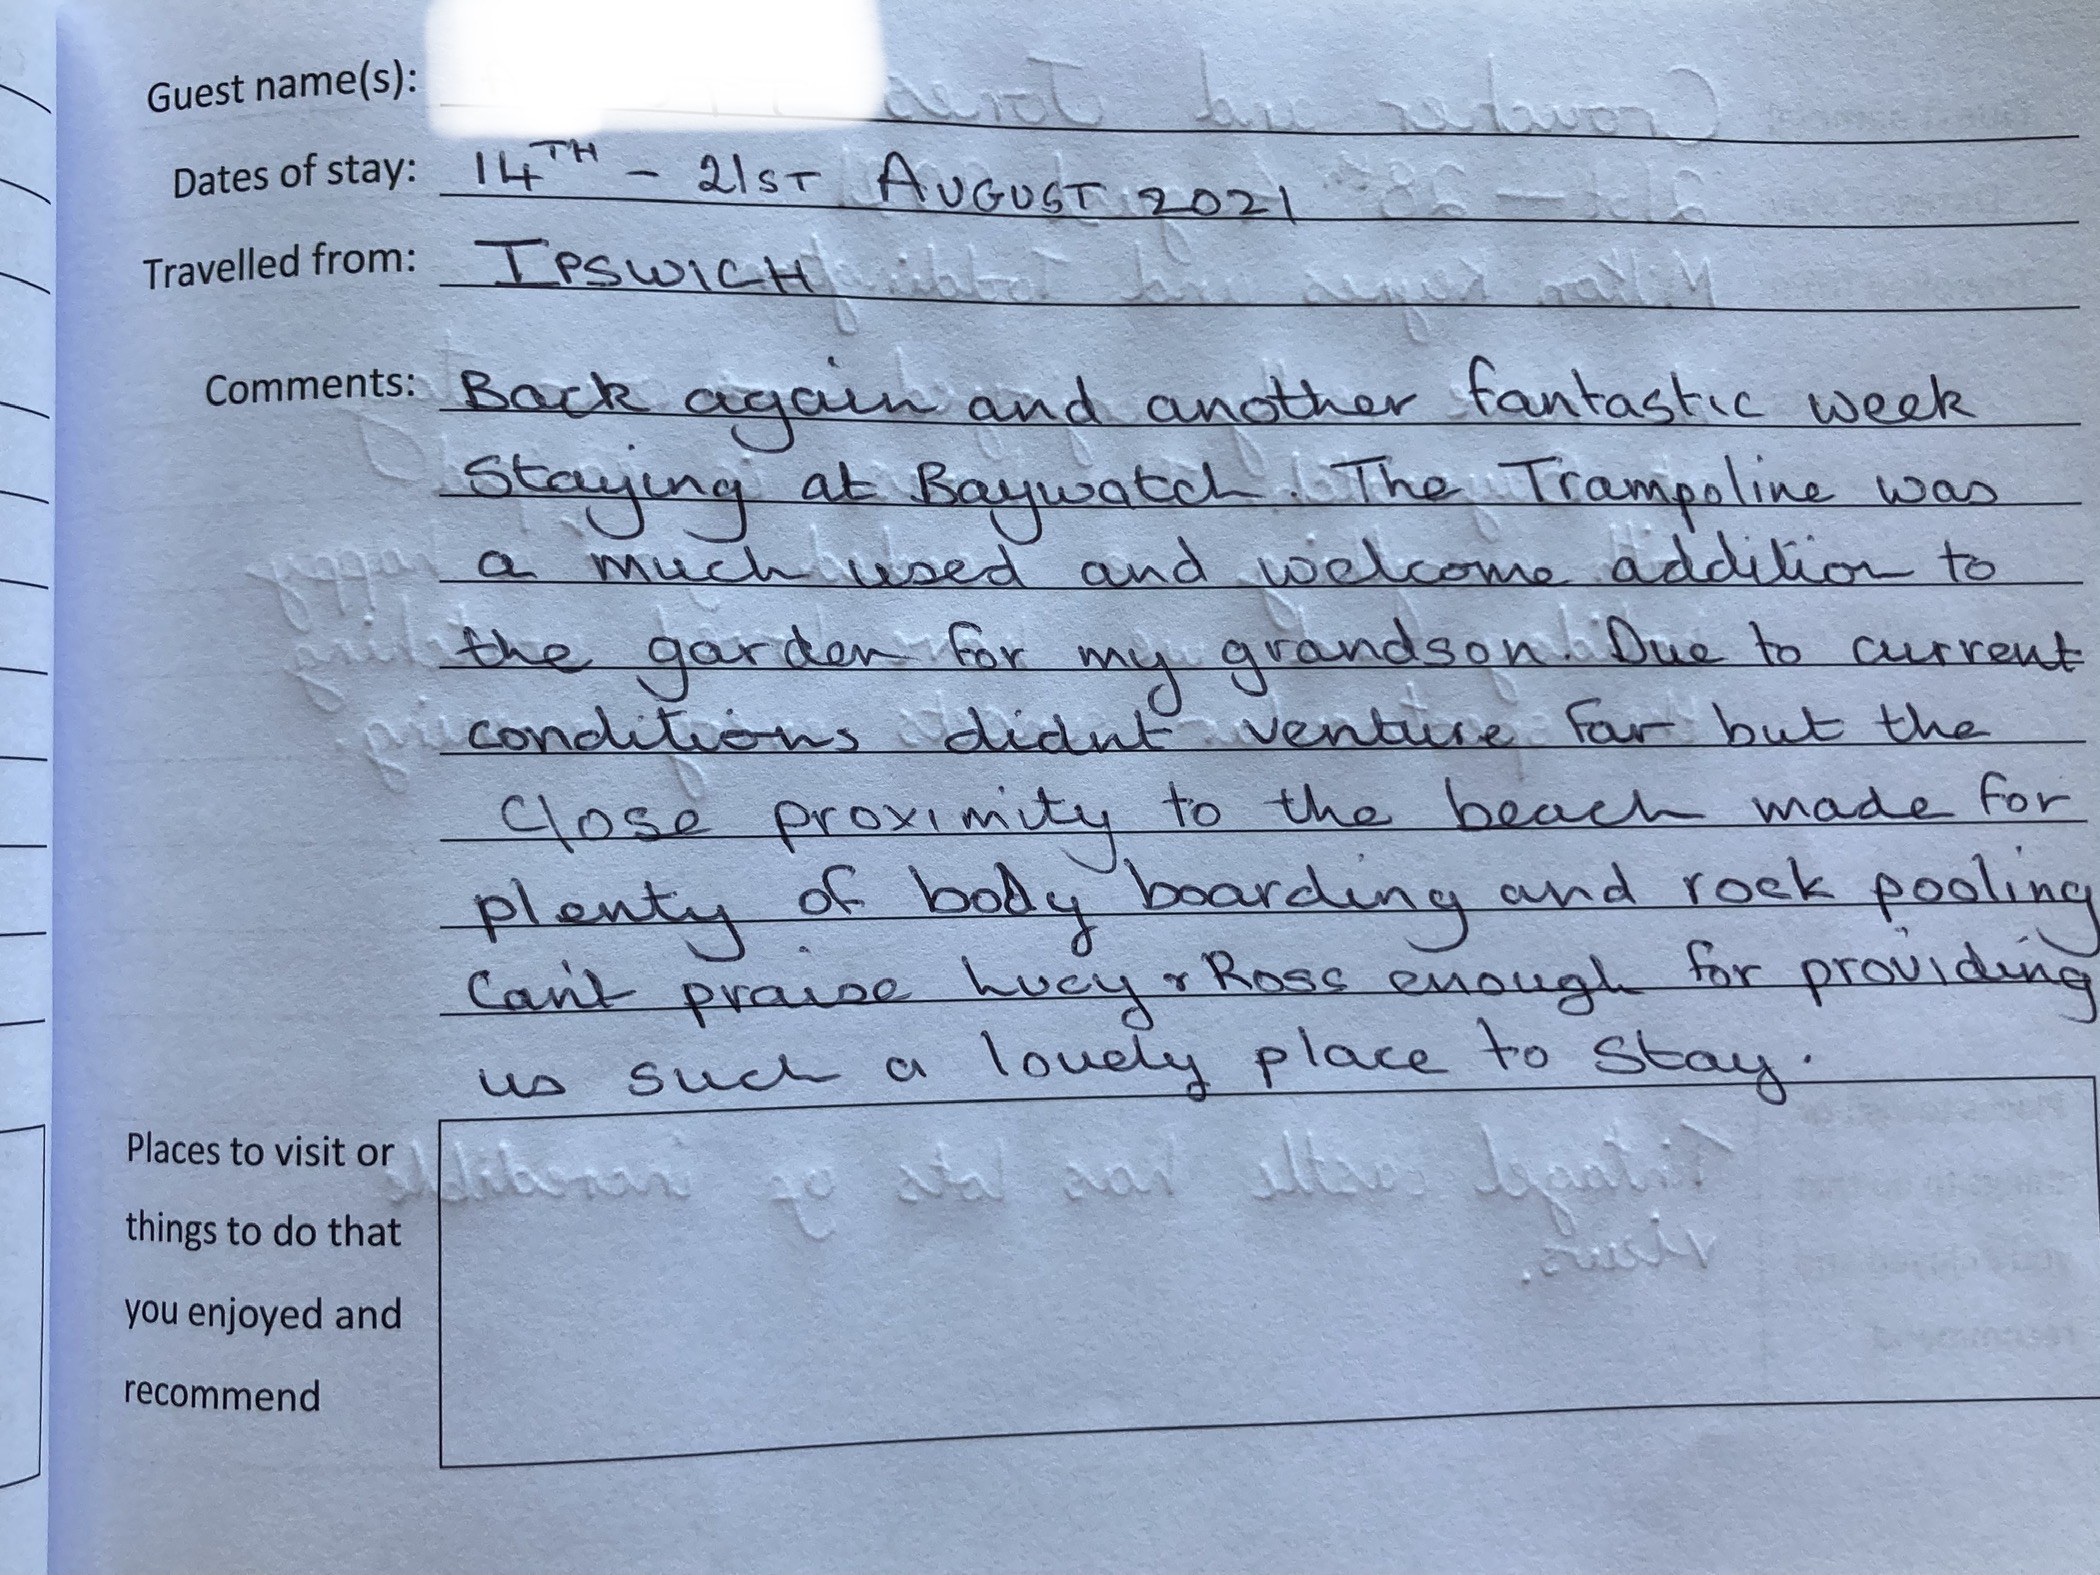 Guest name(s):
Dates of stay: 14TH - 21ST AUGUST 2021
Travelled from: IPSWICH
Comments: Back again and another fantastic week
Staying at Baywatch. The Trampoline was
a much used and welcome addition to
the garden for my grandson. Due to current
conditions didnt venture far but the
Close proximity to the beach made for
plenty of body boarding and rock pooling
Can't praise Lucy & Ross enough for providing
us such a lovely place to stay.
Places to visit or
things to do that
you enjoyed and
recommend